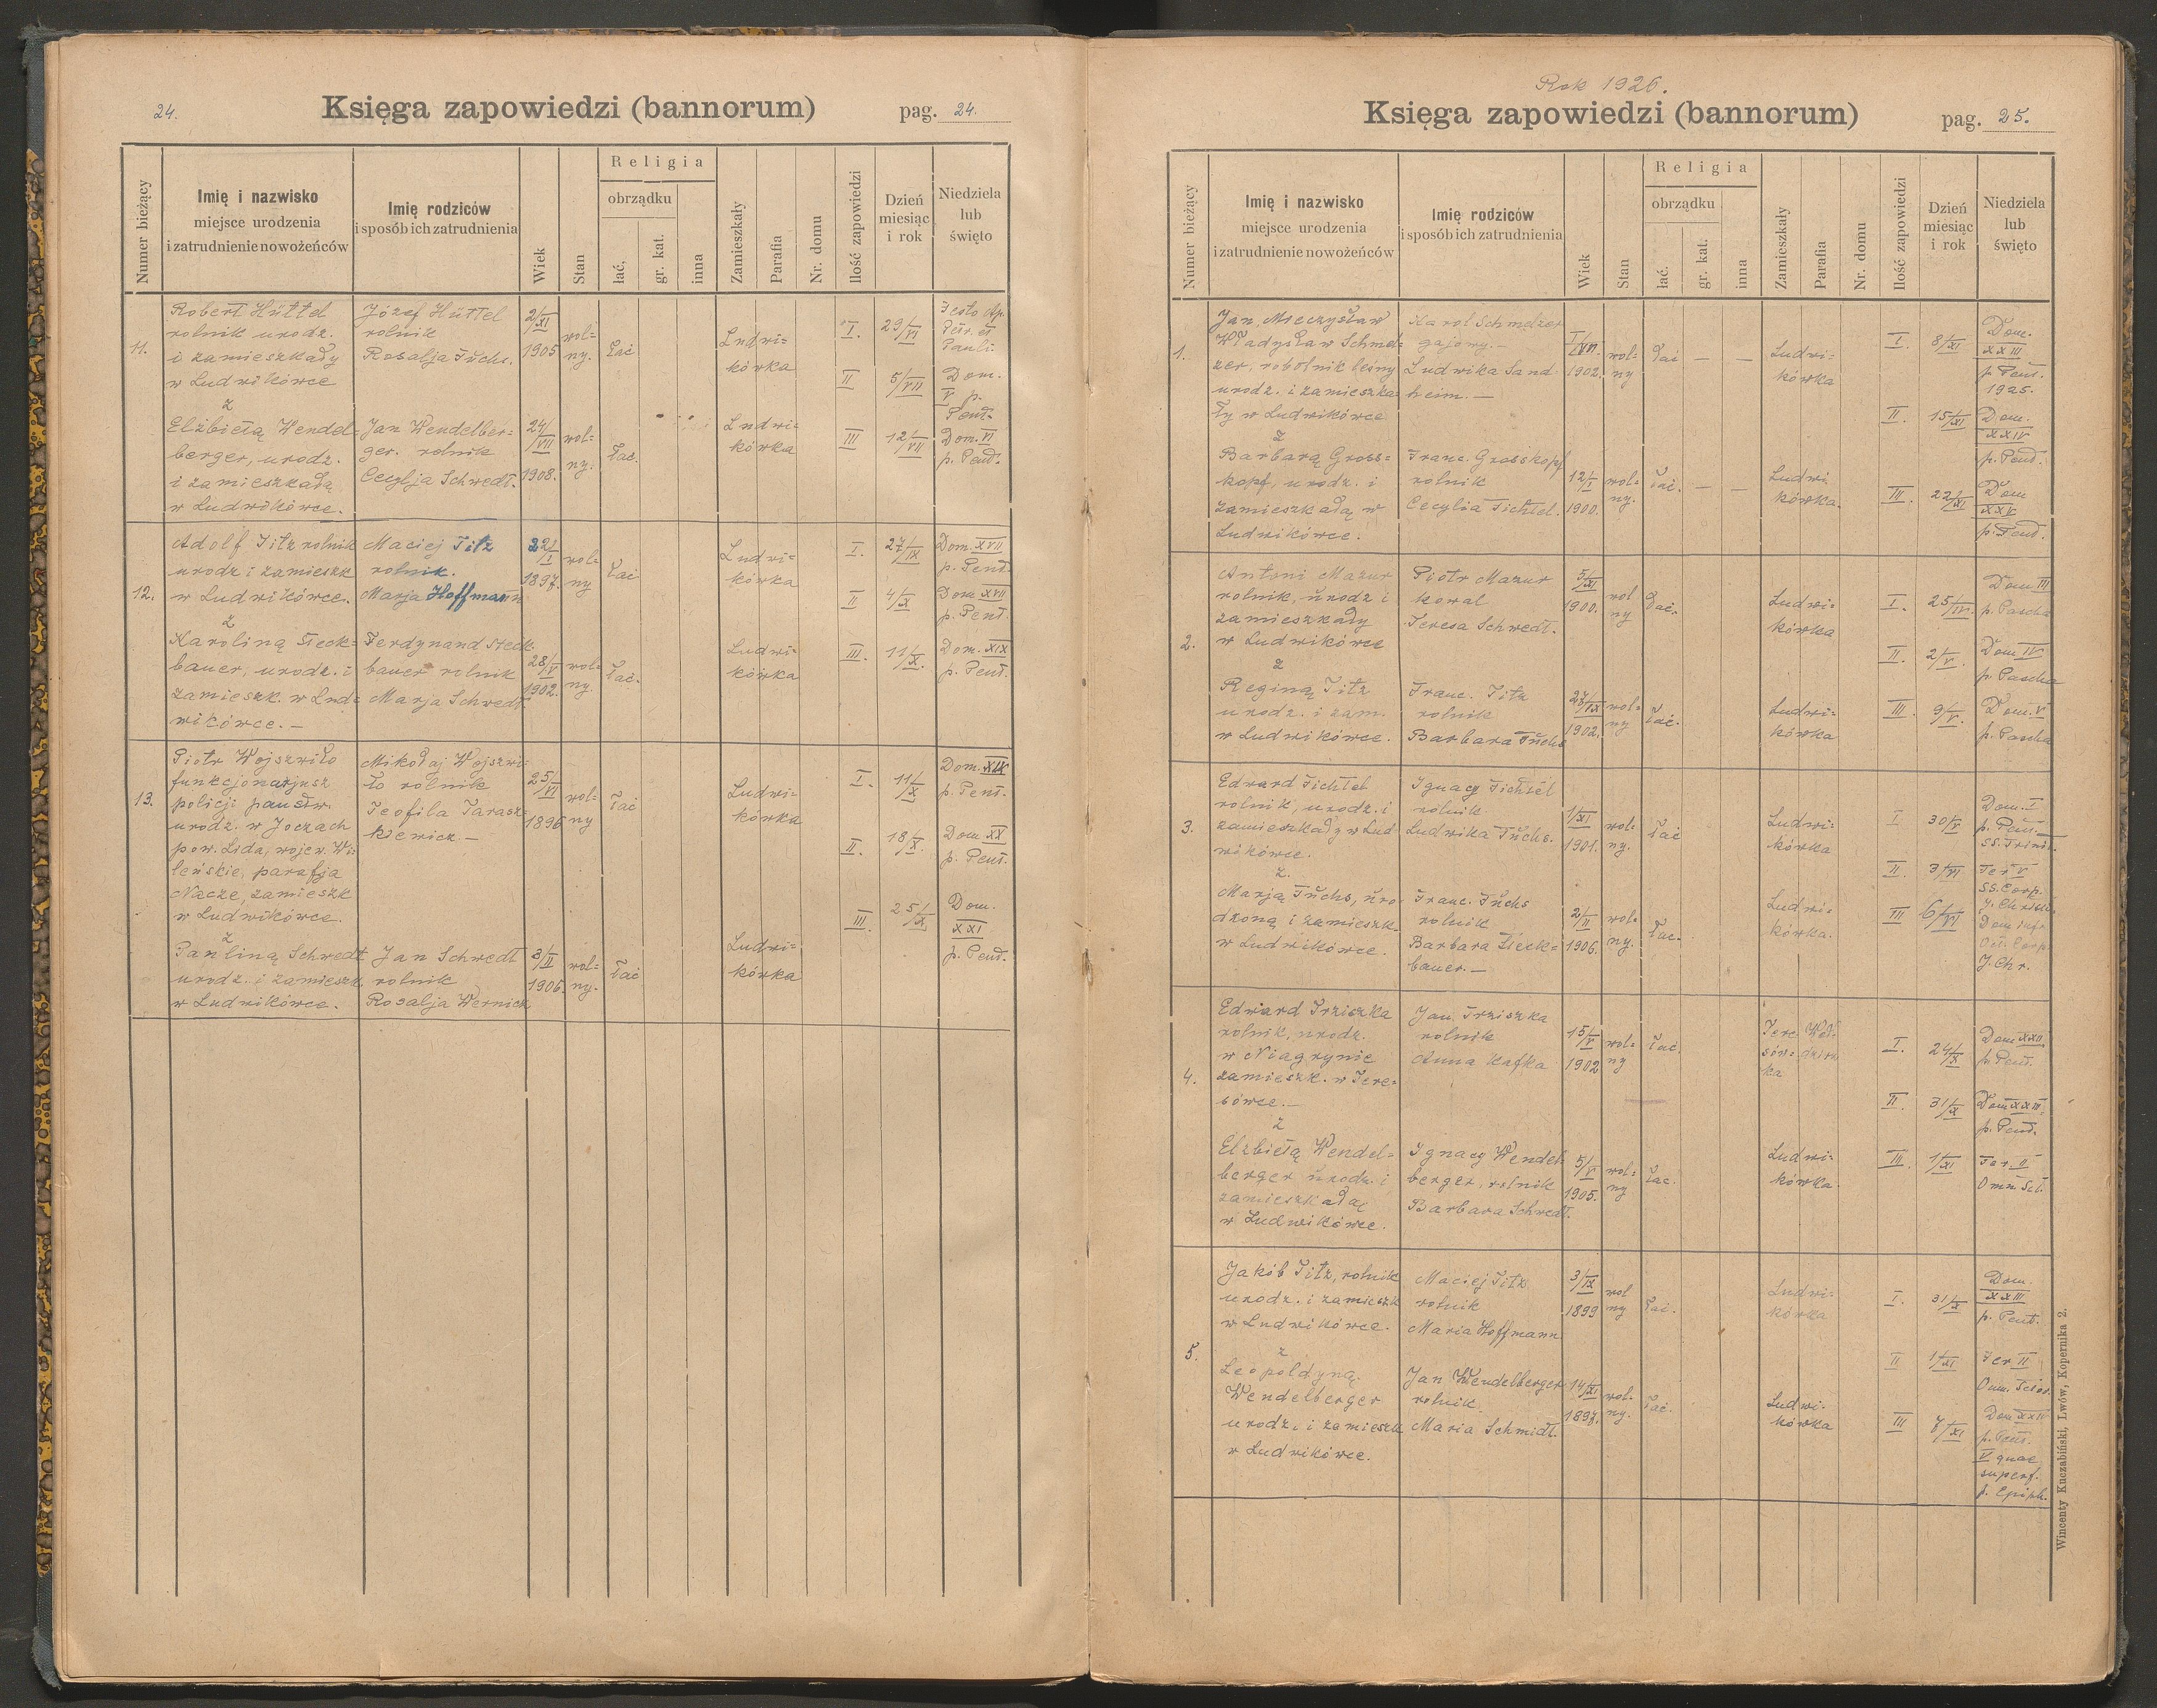 24.
Księga zapowiedzi (bannorum)
pag. 24.
Numer bieżący
Imię i nazwisko
miejsce urodzenia
i zatrudnienie nowożeńców
Imię rodziców
i sposób ich zatrudnienia
Wiek
Stan
Religia
obrządku
łać,
gr. kat.
inna
Zamieszkały
Parafia
Nr. domu
Ilość zapowiedzi
Dzień
miesiąc
i rok
Niedziela
lub
święto
11.
Robert Hüttel
rolnik urodz.
i zamieszkały
w Ludwikówce
z
Elżbietą Wendel-
berger, urodz.
i zamieszkałą
w Ludwikówce.
Józef Hüttel
rolnik
Rosalja Fuchs.
Jan Wendelber=
ger. rolnik
Cecylja Schwedt.
2/XI
1905
wol=
ny.
łać
24/VII
1908.
wol=
ny.
łac.
Ludwi=
kówka
Ludwi=
kówka
I. 29/VI Festo Ap.
Petr. et
Pauli.
II 5/VII Dom.
V p.
Pent.
III 12/VII Dom. VI
p. Pent.
12.
Adolf Titz rolnik
urodz i zamieszk
w Ludwikówce.
z
Karoliną Steck=
bauer, urodz. i
zamieszk. w Lud=
wikówce. —
Maciej Titz
rolnik.
Marja Hoffmann
Ferdynand Steck
bauer rolnik
Marja Schwedt
22/I
1897.
wol=
ny
łać
28/V
1902.
wol=
ny.
łać.
Ludwi=
kówka
Ludwi=
kówka
I. 27/IX Dom. XVII
p. Pent.
II 4/X Dom XVII
p. Pent.
III. 11/X. Dom. XIX
p. Pent.
13.
Piotr Wojszwiło
funkcjonarjusz
policji państw.
urodz. w Joczach
pow. Lida, wojew. Wi=
leńskie, parafja
Nacze, zamieszk
w Ludwikówce.
z
Pauliną Schwedt
urodz. i zamieszk
w Ludwikówce.
Mikołaj Wojszwi=
ło rolnik
Teofila Tarasz=
kiewicz —
Jan Schwedt
rolnik
Rosalja Wernick
25/VI
1896
wol=
ny
łać
3/II
1906.
wol=
ny.
łać
Ludwi=
kówka
Ludwi=
kówka
I. 11/X Dom. XIX
p. Pent.
II. 18/X. Dom XX
p. Pent.
III. 25/X Dom.
XXI
p. Pent.
Rok 1926.
Księga zapowiedzi (bannorum)
pag. 25.
Numer bieżący
Imię i nazwisko
miejsce urodzenia
i zatrudnienie nowożeńców
Imię rodziców
i sposób ich zatrudnienia
Wiek
Stan
Religia
obrządku
łać.
gr. kat.
inna
Zamieszkały
Parafia
Nr. domu
Ilość zapowiedzi
Dzień
miesiąc
i rok
Niedziela
lub
święto
1.
Jan, Mieczysław
Władysław Schmel=
zer, robotnik leśny
urodz. i zamieszka=
ły w Ludwikówce
z
Barbarą Gross=
kopf, urodz. i
zamieszkałą w
Ludwikówce.
Karol Schmelzer
gajowy. —
Ludwika Sand
heim. —
Franc. Grosskopf
rolnik
Cecylia Tichtel.
1902.
wol=
ny
łać — —
12/I
1900.
wol=
ny.
łać. — —
Ludwi=
kówka
Ludwi
kówka.
I. 8/XI Dom.
XXIII
p. Pent.
1925.
II. 15/XI Dom.
XXIV
p. Pent.
III. 22/XI Dom
XXV
p. Pent.
2.
Antoni Mazur
rolnik, urodz i
zamieszkały
w Ludwikówce
z
Reginą Titz
urodz. i zam.
w Ludwikówce.
Piotr Mazur
kowal
Teresa Schwedt.
Franc. Titz
rolnik
Barbara Fuchs
5/XI
1900.
wol
ny
łać.
27/IX
1902.
wol=
ny
łać.
Ludwi=
kówka
Ludwi=
kówka
I. 25/IV. Dom III
p. Pascha
II. 2/V. Dom IV
p. Pascha
III. 9/V. Dom. V
p. Pascha
3.
Edward Tichtel
rolnik, urodz. i
zamieszkały w Lud
wikówce.
z.
Marją Fuchs, uro
dzoną i zamieszk.
w Ludwikówce.
Ignacy Tichtel
rolnik
Ludwika Fuchs.
Franc. Fuchs
rolnik
Barbara Steck=
bauer. —
1/XI
1901.
wol=
ny.
łać
2/II
1906.
wol=
ny.
łac.
Ludwi=
kówka
Ludwi=
kówka.
I 30/V Dom. I
p. Pent.
SS. Trinit.
II. 3/VI Fer V
SS. Corp.
J. Christi
III 6/VI Dom infr
Oct. Corp.
J. Chr.
4.
Edward Trziszka
rolnik, urodz.
w Niagrynie
zamieszk. w Tere=
sówce. —
z
Elżbietą Wendel=
berger urodz. i
zamieszkałą
w Ludwikówce.
Jan Trziszka
rolnik
Anna Kafka
Ignacy Wendel
berger, rolnik
Barbara Schwedt.
15/V
1902
wol=
ny
łac.
5/V
1905.
wol=
ny
łac.
Tere
sów=
ka
Ludwi=
kówka.
I. 24/X Dom XXII
p. Pent.
II. 31/X Dom XXIII
p. Pent.
III. 1/XI Fer. II
Omn. Sct.
5.
Jakób Titz, rolnik
urodz. i zamieszk
w Ludwikówce.
z
Leopoldyną
Wendelberger
urodz. i zamieszk
w Ludwikówce.
Maciej Titz
rolnik
Maria Hoffmann
Jan Wendelberger
rolnik.
Maria Schmidt.
3/IX
1899
wol
ny
łać.
14/XI
1897.
wol.
ny.
łać.
Ludwi=
kówka
Ludwi=
kówka
I. 31/X Dom.
XXIII
p. Pent.
II 1/XI Fer II
III 7/XI Dom XXIV
p. Pent.
V quae
superf.
p. Epiph.
Wincenty Kuczabiński, Lwów, Kopernika 2.